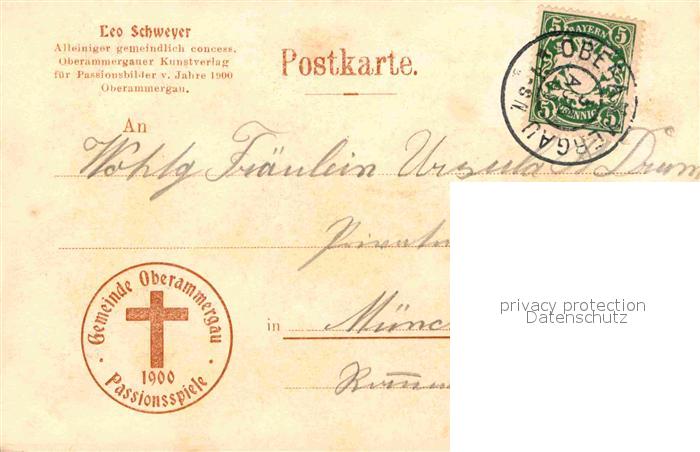 Leo Schweyer
Alleiniger gemeindlich concess.
Oberammergauer Kunstverlag
für Passionsbilder v. Jahre 1900
Oberammergau.
Postkarte.
BAYERN
5 5
5 5
PFENNIG
OBERAMMERGAU
An
Wohlg Fräulein Ursula
Privat
in Münc
Gemeinde Oberammergau
1900
Passionsspiele
privacy protection
Datenschutz